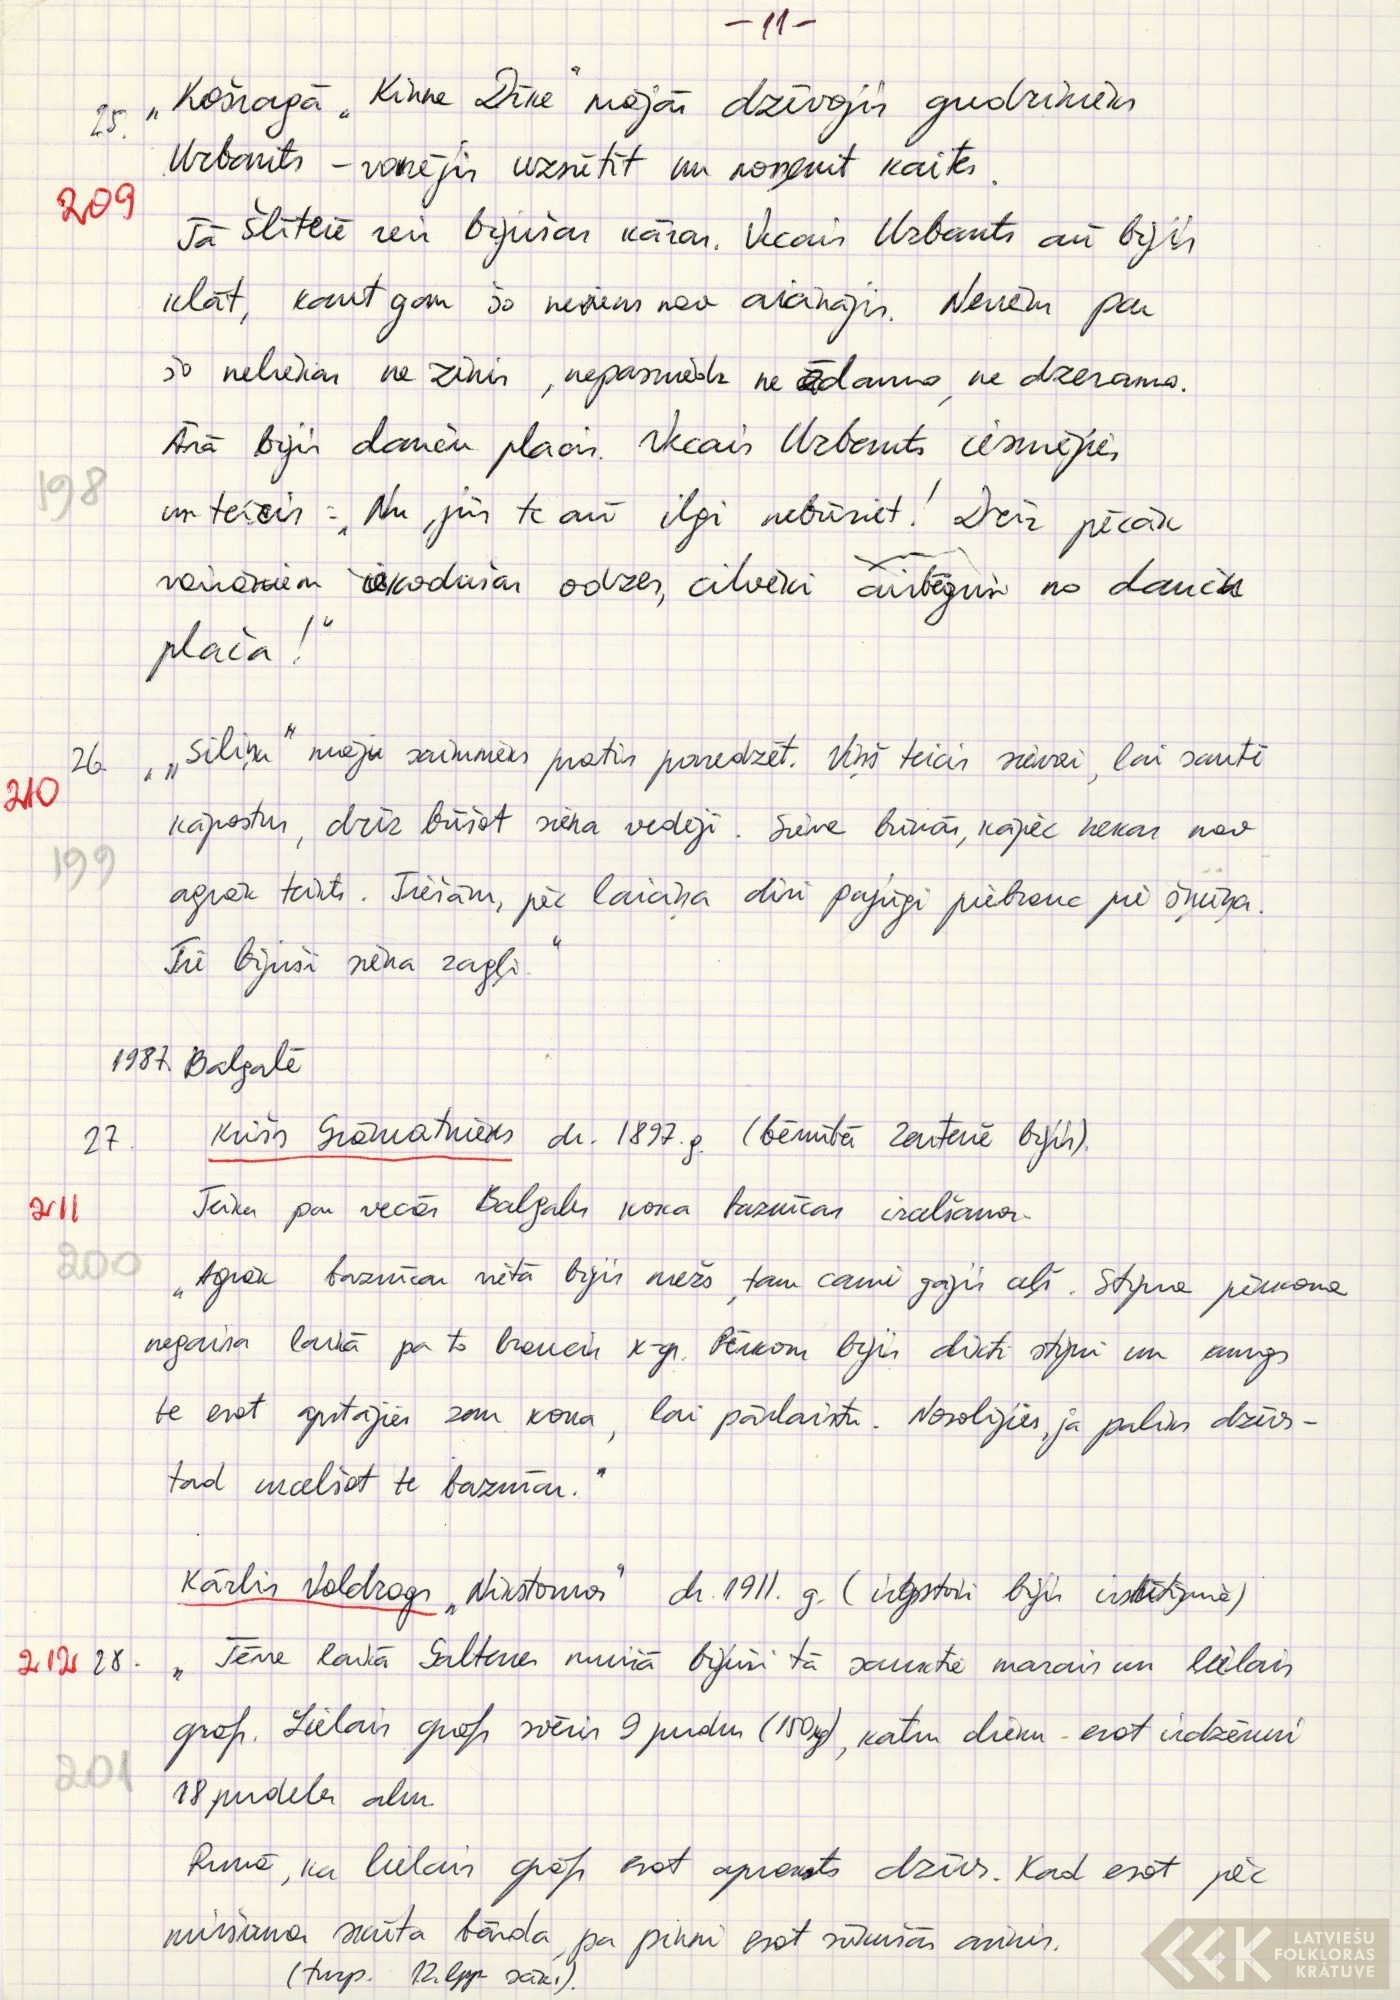 -11-
25. „Košragā „Kinne Dīķe" mājās dzīvojis gudrinieks
Urbants - varējis uzsūtīt un noņemt kaites.
209
Tā Šlīterē reiz bijušas kāzas. Vecais Urbants arī bijis
klāt, kaut gan šo neviens nav aicinājis. Neviens par
šo nelicies ne zinis, nepasniedz ne ēdamo, ne dzeramo.
Ārā bijis dančų placis. Vecais Urbants iesmējies
198
un teicis: „Nu, jūs te arī ilgi nebūsiet! Drīz pēcāk
vairākiem iekodušas odzes, cilvēki aizbēguši no danču
plača!"
26. „„Siliņu" māju saimnieks pratis paredzēt. Viņš teicis sievai, lai sautē
210
kāpostus, drīz būšot siena vedēji. Sieva brīnās, kāpēc nekas nav
199
agrāk teikts. Tiešām, pēc laiciņa divi pajūgi piebrauc pie šķūņa.
Tie bijuši siena zagļi."
1987. Balgalē
27. Krišs Grāmatnieks dz. 1897. g. (bērnībā Zentenē bijis).
211
Teika par vecās Balgales koka baznīcas izcelšanos.
200
„Agrāk baznīcas vietā bijis mežs, tam cauri gājis ceļš. Stipra pērkona
negaisa laikā pa to braucis k-gs. Pērkons bijis dikti stipri un kungs
te esot apstājies zem koka, lai pārlaistu. Nosolījies, ja paliks dzīvs -
tad uzcelšot te baznīcu."
Kārlis Valdrogs „Nikstomos" dz. 1911. g. (izgstoši bijis izsūtījumā)
212 28. „Tēva laikā Galtenes muižā bijuši tā sauktie mazais un lielais
grāfs. Lielais grāfs svēris 9 pudu (150 kg), katru dienu - esot izdzēruši
201
18 pudeles alu.
Runā, ka lielais grāfs esot aprakts dzīvs. Kad esot pēc
miršanas skūta bārda, pa pinni esot sūkušās asinis.
(turp. 12. lpp. sāk.).
LATVIEŠU
FOLKLORAS
KRĀTUVE